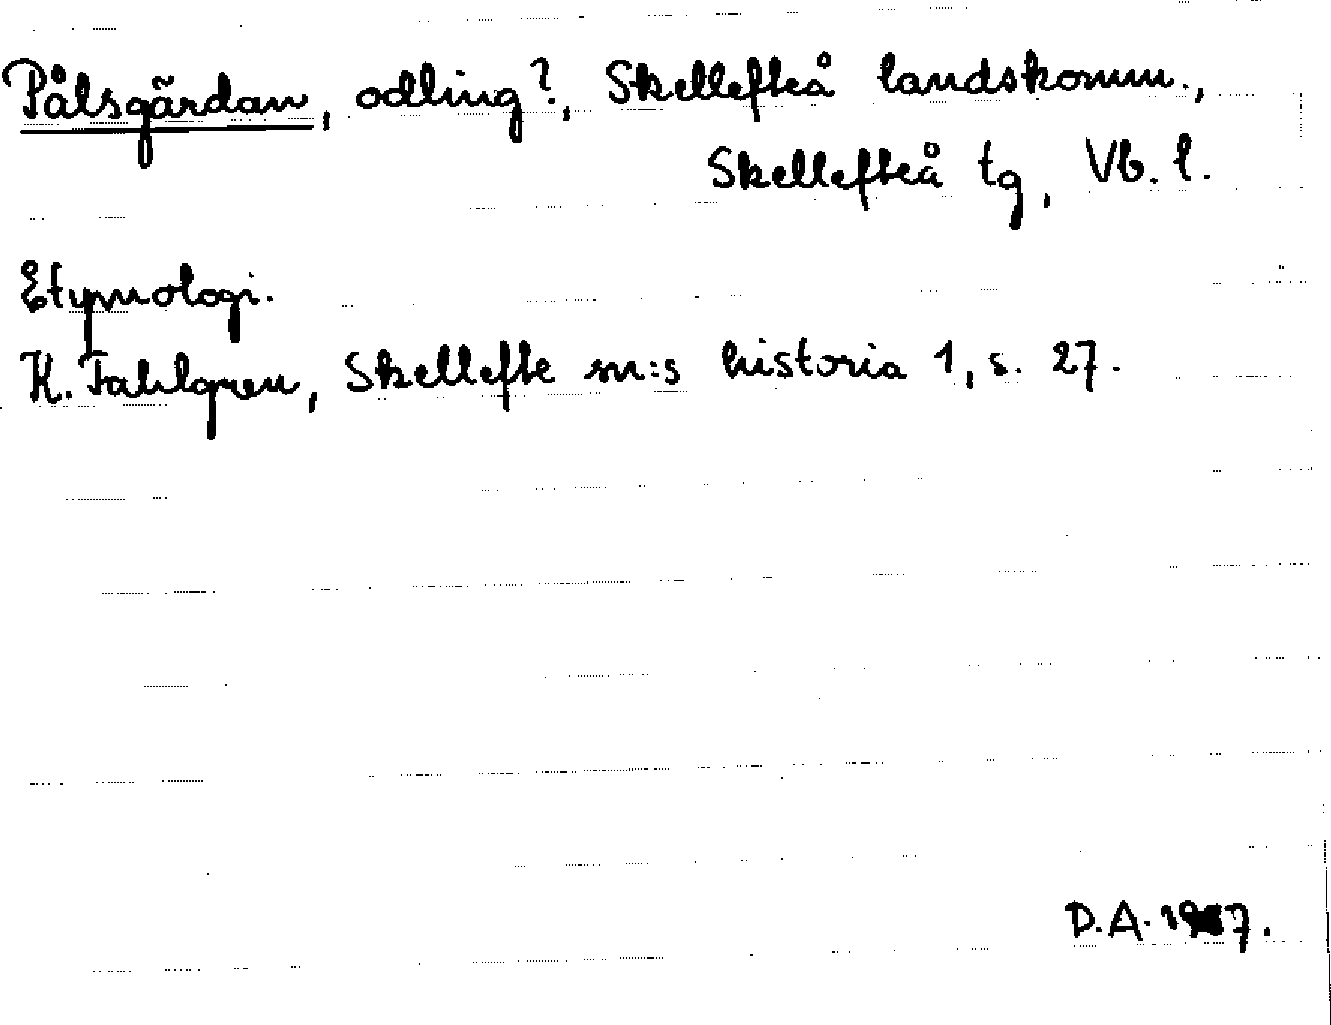 Pålsgärdan, odling?, Skellefteå landskomm.,
Skellefteå tg, Vb. l.
Etymologi.
K. Fahlgren, Skellefte sn:s historia 1, s. 27.
D.A.